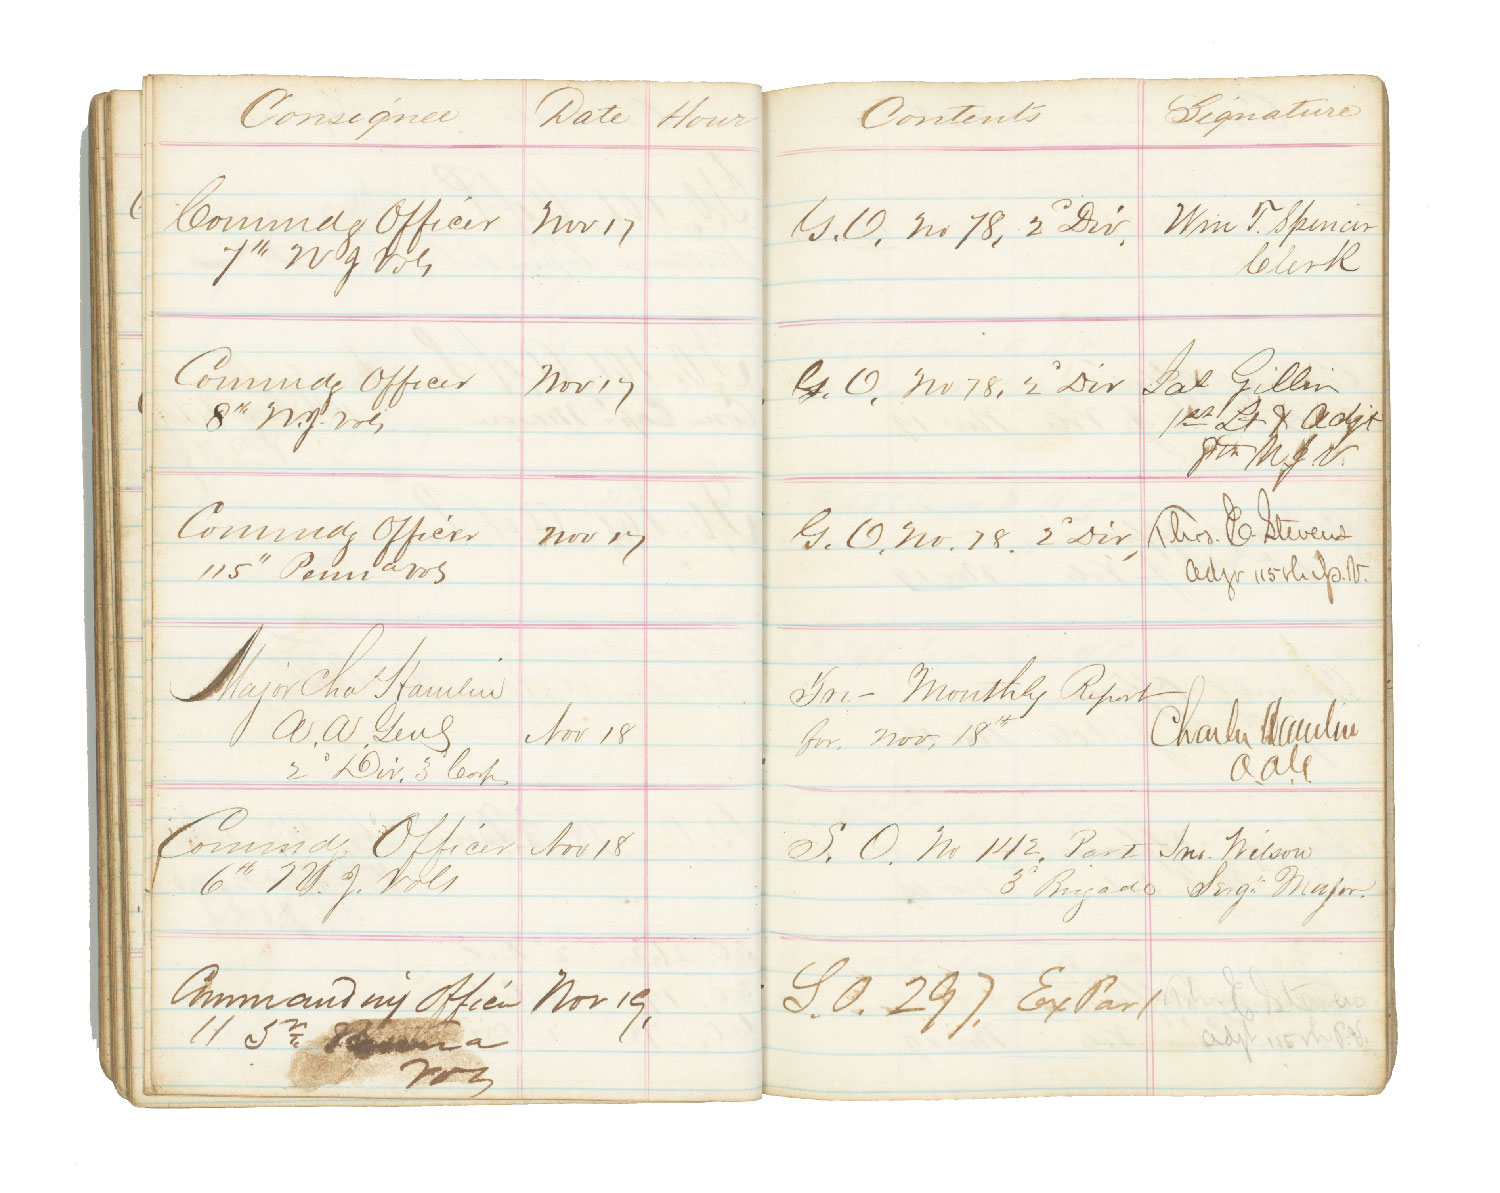 Consignee Date Hour Contents Signature
Commdg Officer Nov 17 G.O. No 78, 2d Div, Wm T. Spencer
7th N J Vols Clerk
Commdg Officer Nov 17 G.O. No 78, 2d Div Gillin
8th N.J. Vols 1st Lt & Adjt
8th N J V.
Commdg Officer Nov 17 G.O. No. 78. 2d Div, Thos. E. Stevens
115" Penna Vols Adjt 115th P.V.
Major Chas Hamlin Tri- Monthly Report
A.A. Genl Nov 18 for. Nov, 18th Charles Hamlin
2d Div. 3d Corps A.A.G.
Commdg Officer Nov 18 S. O. No 142, Part Jno. Wilson
6th N.J. Vols 3d Brigade Sergt Major.
Commanding Officer Nov 19, S.O. 297, Ex Part Stevens
115th Penna Adjt 115th P.V.
Vols